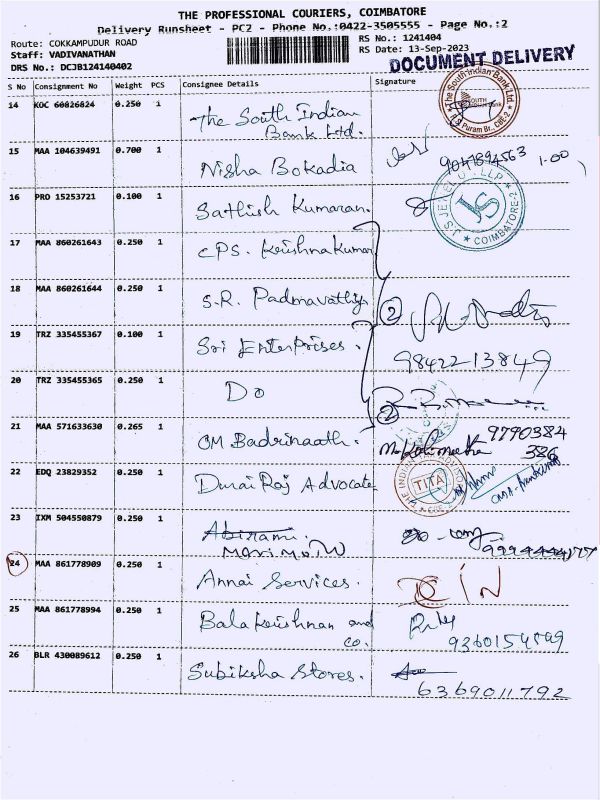 THE PROFESSIONAL COURIERS, COIMBATORE
Delivery Runsheet - PC2 - Phone No.:0422-3505555 - Page No.:2
Route: COKKAMPUDUR ROAD
RS No.: 1241404
Staff: VADIVANATHAN
RS Date: 13-Sep-2023
DRS No.: DCJB124140402
DOCUMENT DELIVERY
S No Consignment No Weight PCS Consignee Details Signature
14 KOC 60826824 0.250 1 The South Indian
Bank Ltd.
The South Indian Bank Ltd.
R.S Puram Br., CBE-2
15 MAA 104639491 0.700 1 Nisha Bokadia
1-00
16 PRO 15253721 0.100 1 Sathish Kumaran.
J.S. JEWEL LLP
JS
COIMBATORE-2
17 MAA 860261643 0.250 1 CPS. Krishnakumar
18 MAA 860261644 0.250 1 S.R. Padmavathy
2
19 TRZ 335455367 0.100 1 Sri Enterprises.
9842213849
20 TRZ 335455365 0.250 1 Do
2
21 MAA 571633630 0.265 1 OM Badrinaath.
9790384
386
22 EDQ 23829352 0.250 1 Durai Raj Advocate
TITA
23 IXM 504550879 0.250 1 Abirami.
24 MAA 861778909 0.250 1 Annai Services.
25 MAA 861778994 0.250 1 Bala Krishnan and
co.
26 BLR 430089612 0.250 1 Subiksha Stores.
6369011792